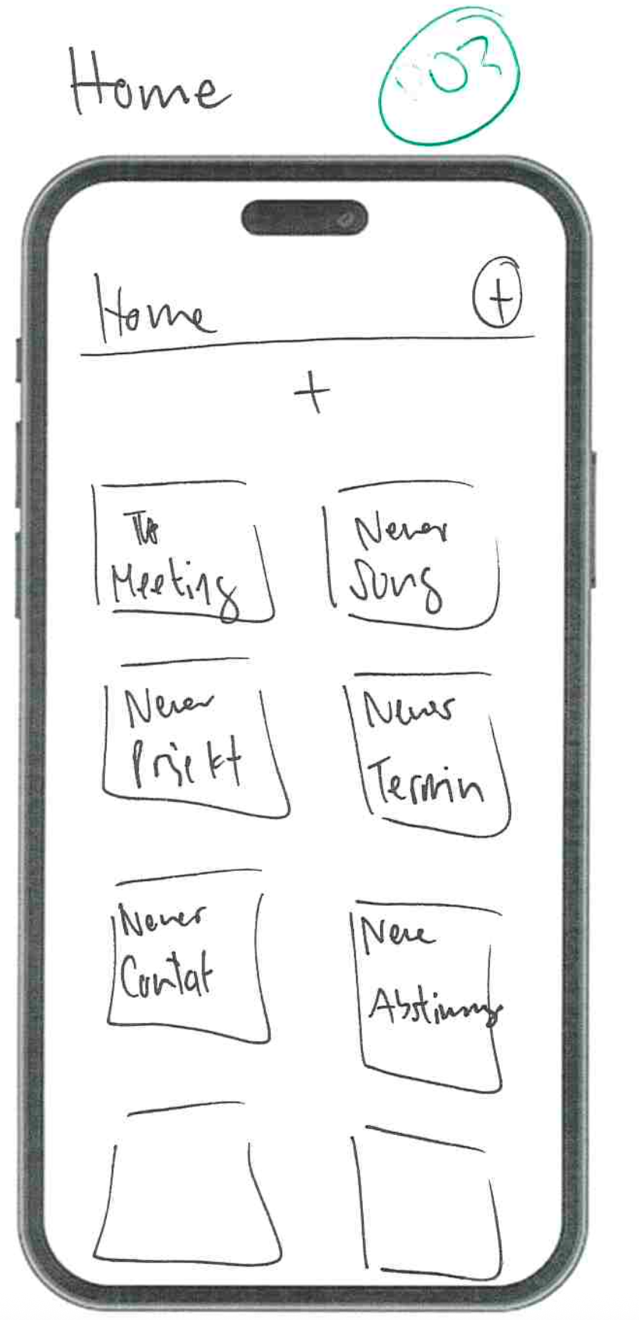 Home
003
Home +
+
Meeting
Neuer
Song
Neues
Projekt
Neuer
Termin
Neuer
Contat
Neue